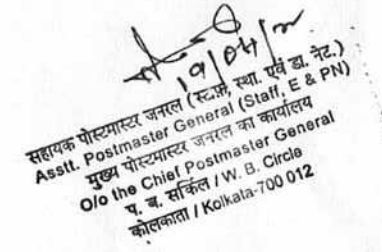 19/04/22
सहायक पोस्टमास्टर जनरल (स्टाफ, स्था. एवं डा. नेट.)
Asstt. Postmaster General (Staff, E & PN)
मुख्य पोस्टमास्टर जनरल का कार्यालय
O/o the Chief Postmaster General
प. ब. सर्किल / W. B. Circle
कोलकाता / Kolkata-700 012